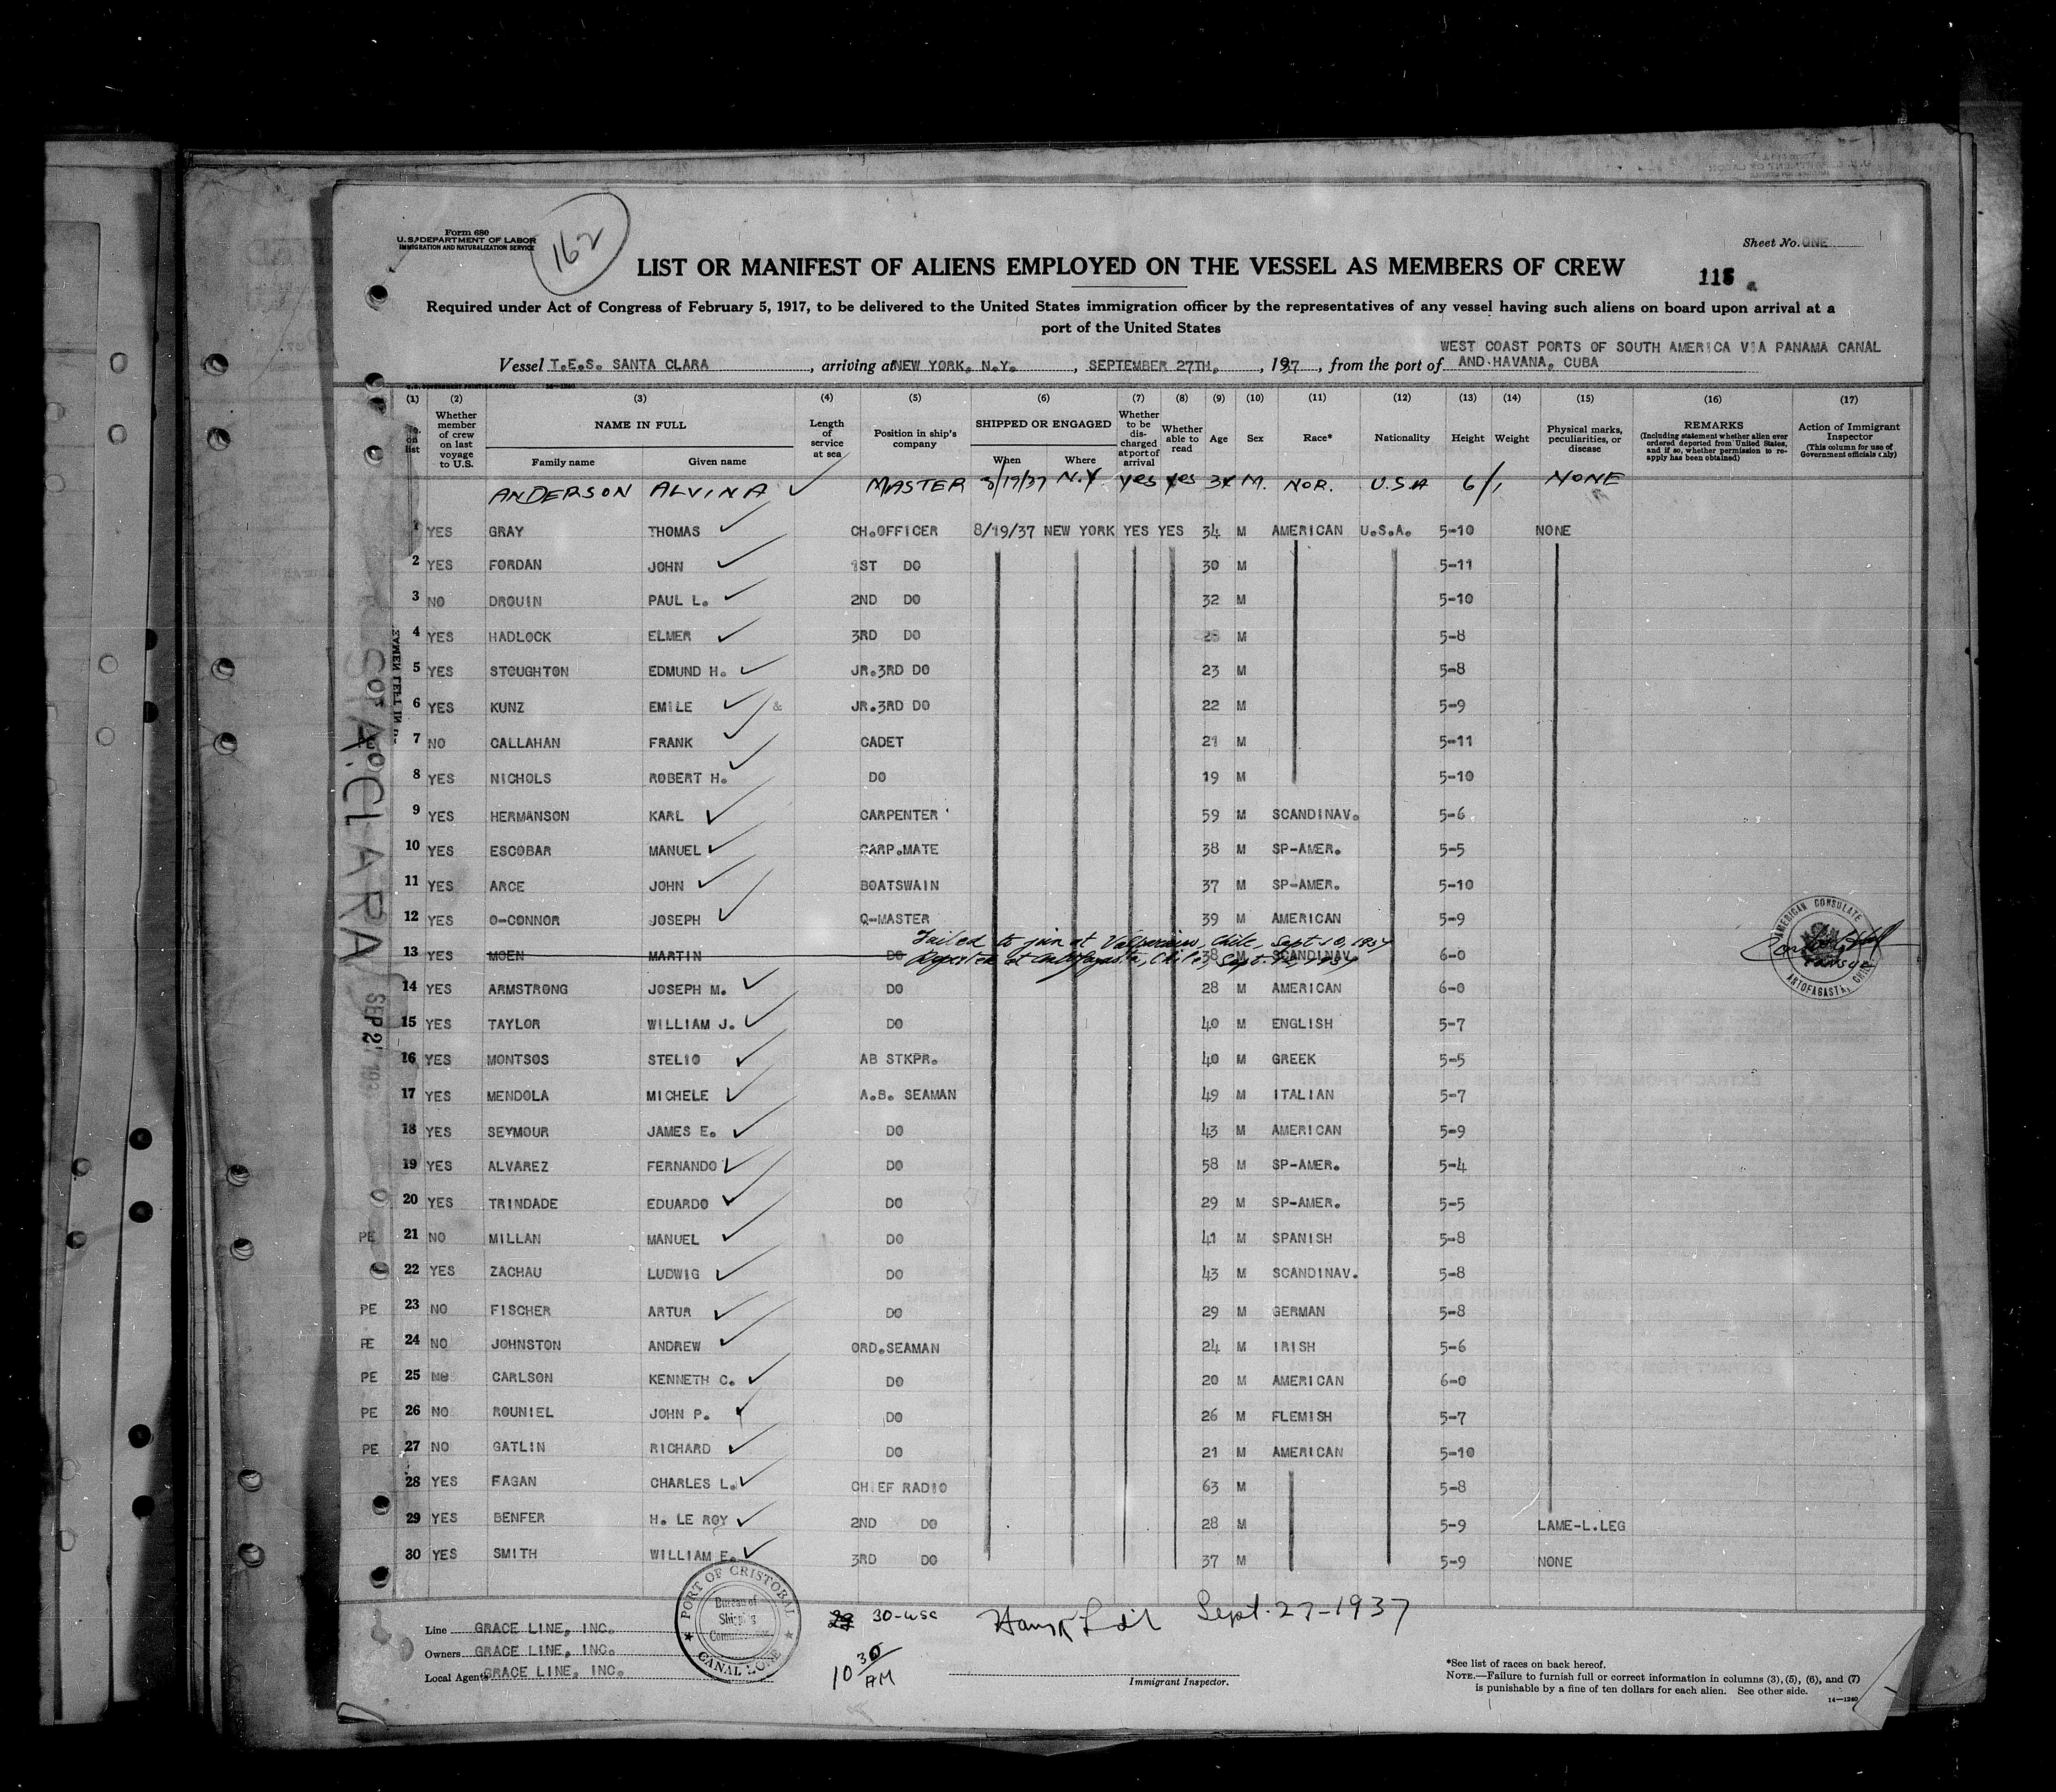 Form 680
U. S. DEPARTMENT OF LABOR
IMMIGRATION AND NATURALIZATION SERVICE
162
Sheet No. ONE
LIST OR MANIFEST OF ALIENS EMPLOYED ON THE VESSEL AS MEMBERS OF CREW
115 a
Required under Act of Congress of February 5, 1917, to be delivered to the United States immigration officer by the representatives of any vessel having such aliens on board upon arrival at a
port of the United States
WEST COAST PORTS OF SOUTH AMERICA VIA PANAMA CANAL
Vessel T.E.S. SANTA CLARA, arriving at NEW YORK, N.Y., SEPTEMBER 27TH, 1937, from the port of AND HAVANA, CUBA
(1) (2) (3) (4) (5) (6) (7) (8) (9) (10) (11) (12) (13) (14) (15) (16) (17)
No. on list
Whether member of crew on last voyage to U.S.
NAME IN FULL
Family name Given name
Length of service at sea
Position in ship's company
SHIPPED OR ENGAGED
When Where
Whether to be discharged at port of arrival
Whether able to read
Age Sex Race* Nationality Height Weight
Physical marks, peculiarities, or disease
REMARKS
(Including statement whether alien ever ordered deported from United States, and if so, whether permission to reapply has been obtained)
Action of Immigrant Inspector
(This column for use of Government officials only)
ANDERSON ALVINA MASTER 8/19/37 N.Y yes yes 34 M. NOR. U.S.A 6/1 NONE
1 YES GRAY THOMAS CH.OFFICER 8/19/37 NEW YORK YES YES 34 M AMERICAN U.S.A. 5-10 NONE
2 YES FORDAN JOHN 1ST DO 30 M 5-11
3 NO DROUIN PAUL L. 2ND DO 32 M 5-10
4 YES HADLOCK ELMER 3RD DO 28 M 5-8
5 YES STOUGHTON EDMUND H. JR.3RD DO 23 M 5-8
6 YES KUNZ EMILE & JR.3RD DO 22 M 5-9
7 NO CALLAHAN FRANK CADET 21 M 5-11
8 YES NICHOLS ROBERT H. DO 19 M 5-10
9 YES HERMANSON KARL CARPENTER 59 M SCANDINAV. 5-6
10 YES ESCOBAR MANUEL CARP.MATE 38 M SP-AMER. 5-5
11 YES ARCE JOHN BOATSWAIN 37 M SP-AMER. 5-10
12 YES O-CONNOR JOSEPH Q-MASTER 39 M AMERICAN 5-9
Failed to join at Valparaiso, Chile, Sept 10, 1937
13 YES MOEN MARTIN DO 38 M SCANDINAV. 6-0
Reported at Antofagasta, Chile, Sept. 12, 1937
AMERICAN CONSULATE
ANTOFAGASTA, CHILE
14 YES ARMSTRONG JOSEPH M. DO 28 M AMERICAN 6-0
15 YES TAYLOR WILLIAM J. DO 40 M ENGLISH 5-7
16 YES MONTSOS STELIO AB STKPR. 40 M GREEK 5-5
17 YES MENDOLA MICHELE A.B. SEAMAN 49 M ITALIAN 5-7
18 YES SEYMOUR JAMES E. DO 43 M AMERICAN 5-9
19 YES ALVAREZ FERNANDO DO 58 M SP-AMER. 5-4
20 YES TRINDADE EDUARDO DO 29 M SP-AMER. 5-5
PE 21 NO MILLAN MANUEL DO 41 M SPANISH 5-8
22 YES ZACHAU LUDWIG DO 43 M SCANDINAV. 5-8
PE 23 NO FISCHER ARTUR DO 29 M GERMAN 5-8
PE 24 NO JOHNSTON ANDREW ORD.SEAMAN 24 M IRISH 5-6
PE 25 NO CARLSON KENNETH C. DO 20 M AMERICAN 6-0
PE 26 NO ROUNIEL JOHN P. DO 26 M FLEMISH 5-7
PE 27 NO GATLIN RICHARD DO 21 M AMERICAN 5-10
28 YES FAGAN CHARLES L. CHIEF RADIO 63 M 5-8
29 YES BENFER H. LE ROY 2ND DO 28 M 5-9 LAME-L.LEG
30 YES SMITH WILLIAM E. 3RD DO 37 M 5-9 NONE
STA. CLARA
SEP 27 193
PORT OF CRISTOBAL
Bureau of Shipping Commissioner
CANAL ZONE
Line GRACE LINE, INC.
Owners GRACE LINE, INC.
Local Agents GRACE LINE, INC.
29 30-USC
10 30 AM
Sept. 27-1937
Immigrant Inspector.
*See list of races on back hereof.
NOTE.—Failure to furnish full or correct information in columns (3), (5), (6), and (7)
is punishable by a fine of ten dollars for each alien. See other side.
14—1240